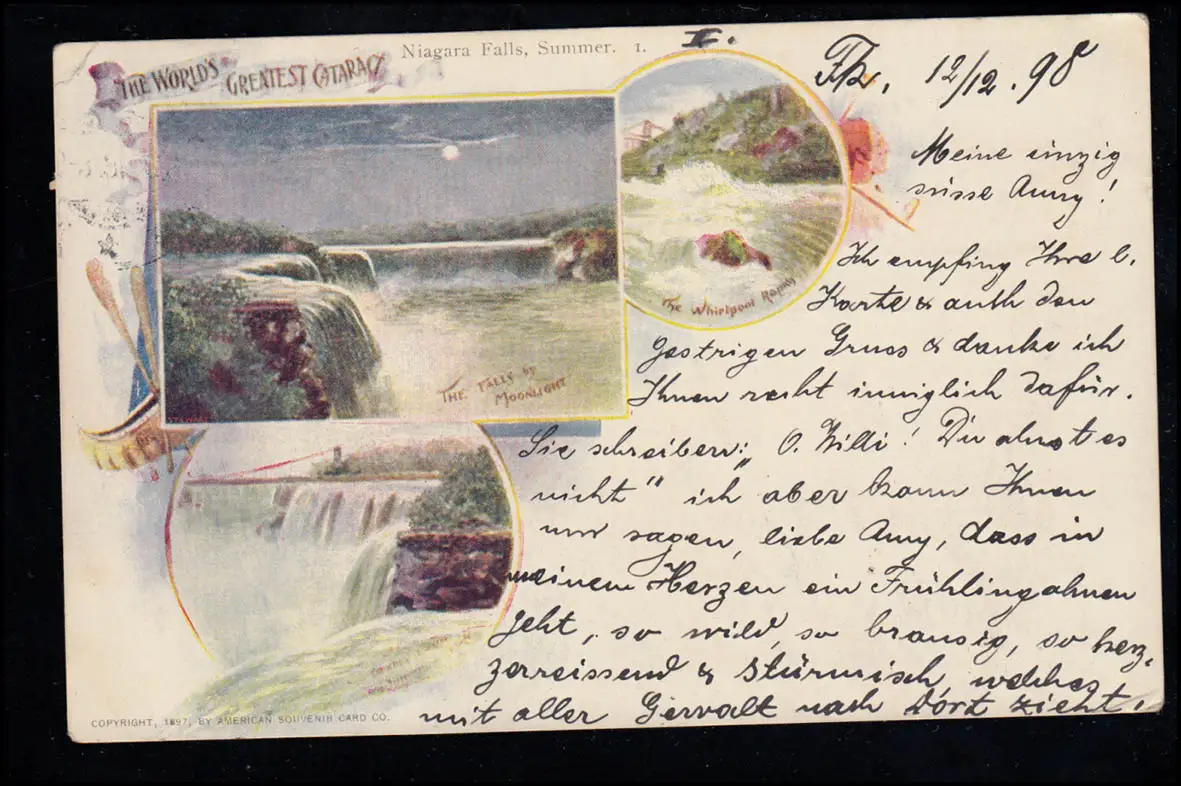 Niagara Falls, Summer. 1.
II.
THE WORLD'S GREATEST CATARACT
12/12.98
Meine einzig
süsse Anny!
Ich empfing Ihre l.
Karte & auch den
gestrigen Gruss & danke ich
Ihnen recht inniglich dafür.
Sie schreiben: „O. Willi! Du ahnst es
nicht" ich aber kann Ihnen
nur sagen, liebe Anny, dass in
meinem Herzen ein Frühlingahnen
geht, so wild, so brausig, so herz-
zerreissend & stürmisch, welches
mit aller Gewalt nach Dort zieht.
The Whirlpool Rapids
THE FALLS by
MOONLIGHT
COPYRIGHT, 1897, BY AMERICAN SOUVENIR CARD CO.